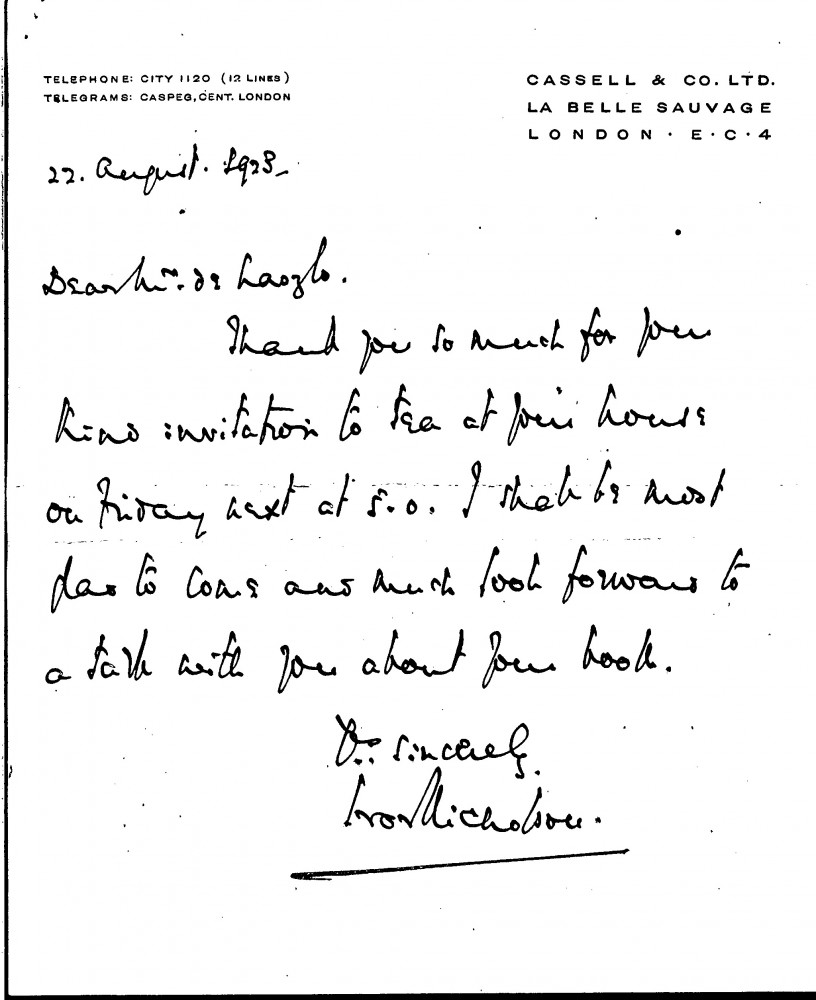 TELEPHONE: CITY 1120 (12 LINES)
TELEGRAMS: CASPEG, CENT. LONDON
CASSELL & CO. LTD.
LA BELLE SAUVAGE
LONDON · E·C·4
22. August. 1923_
Dear Mr. de Laszlo.
Thank you so much for your
kind invitation to tea at your house
on Friday next at 5.0. I shall be most
glad to come and much look forward to
a talk with you about your book.
Yrs. sincerely.
Ivor Nicholson.